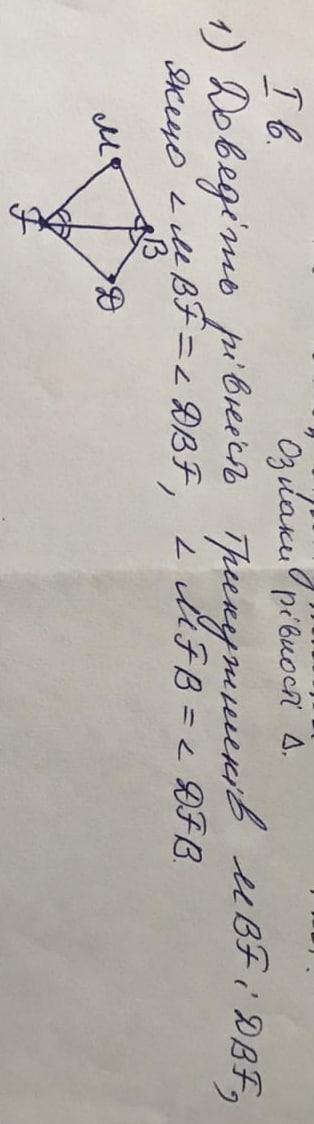 Ознаки рівності Δ.
I в.
1) Доведіть рівність трикутників MBF і DBF,
якщо ∠MBF = ∠DBF, ∠MFB = ∠DFB.
M
B
F
D